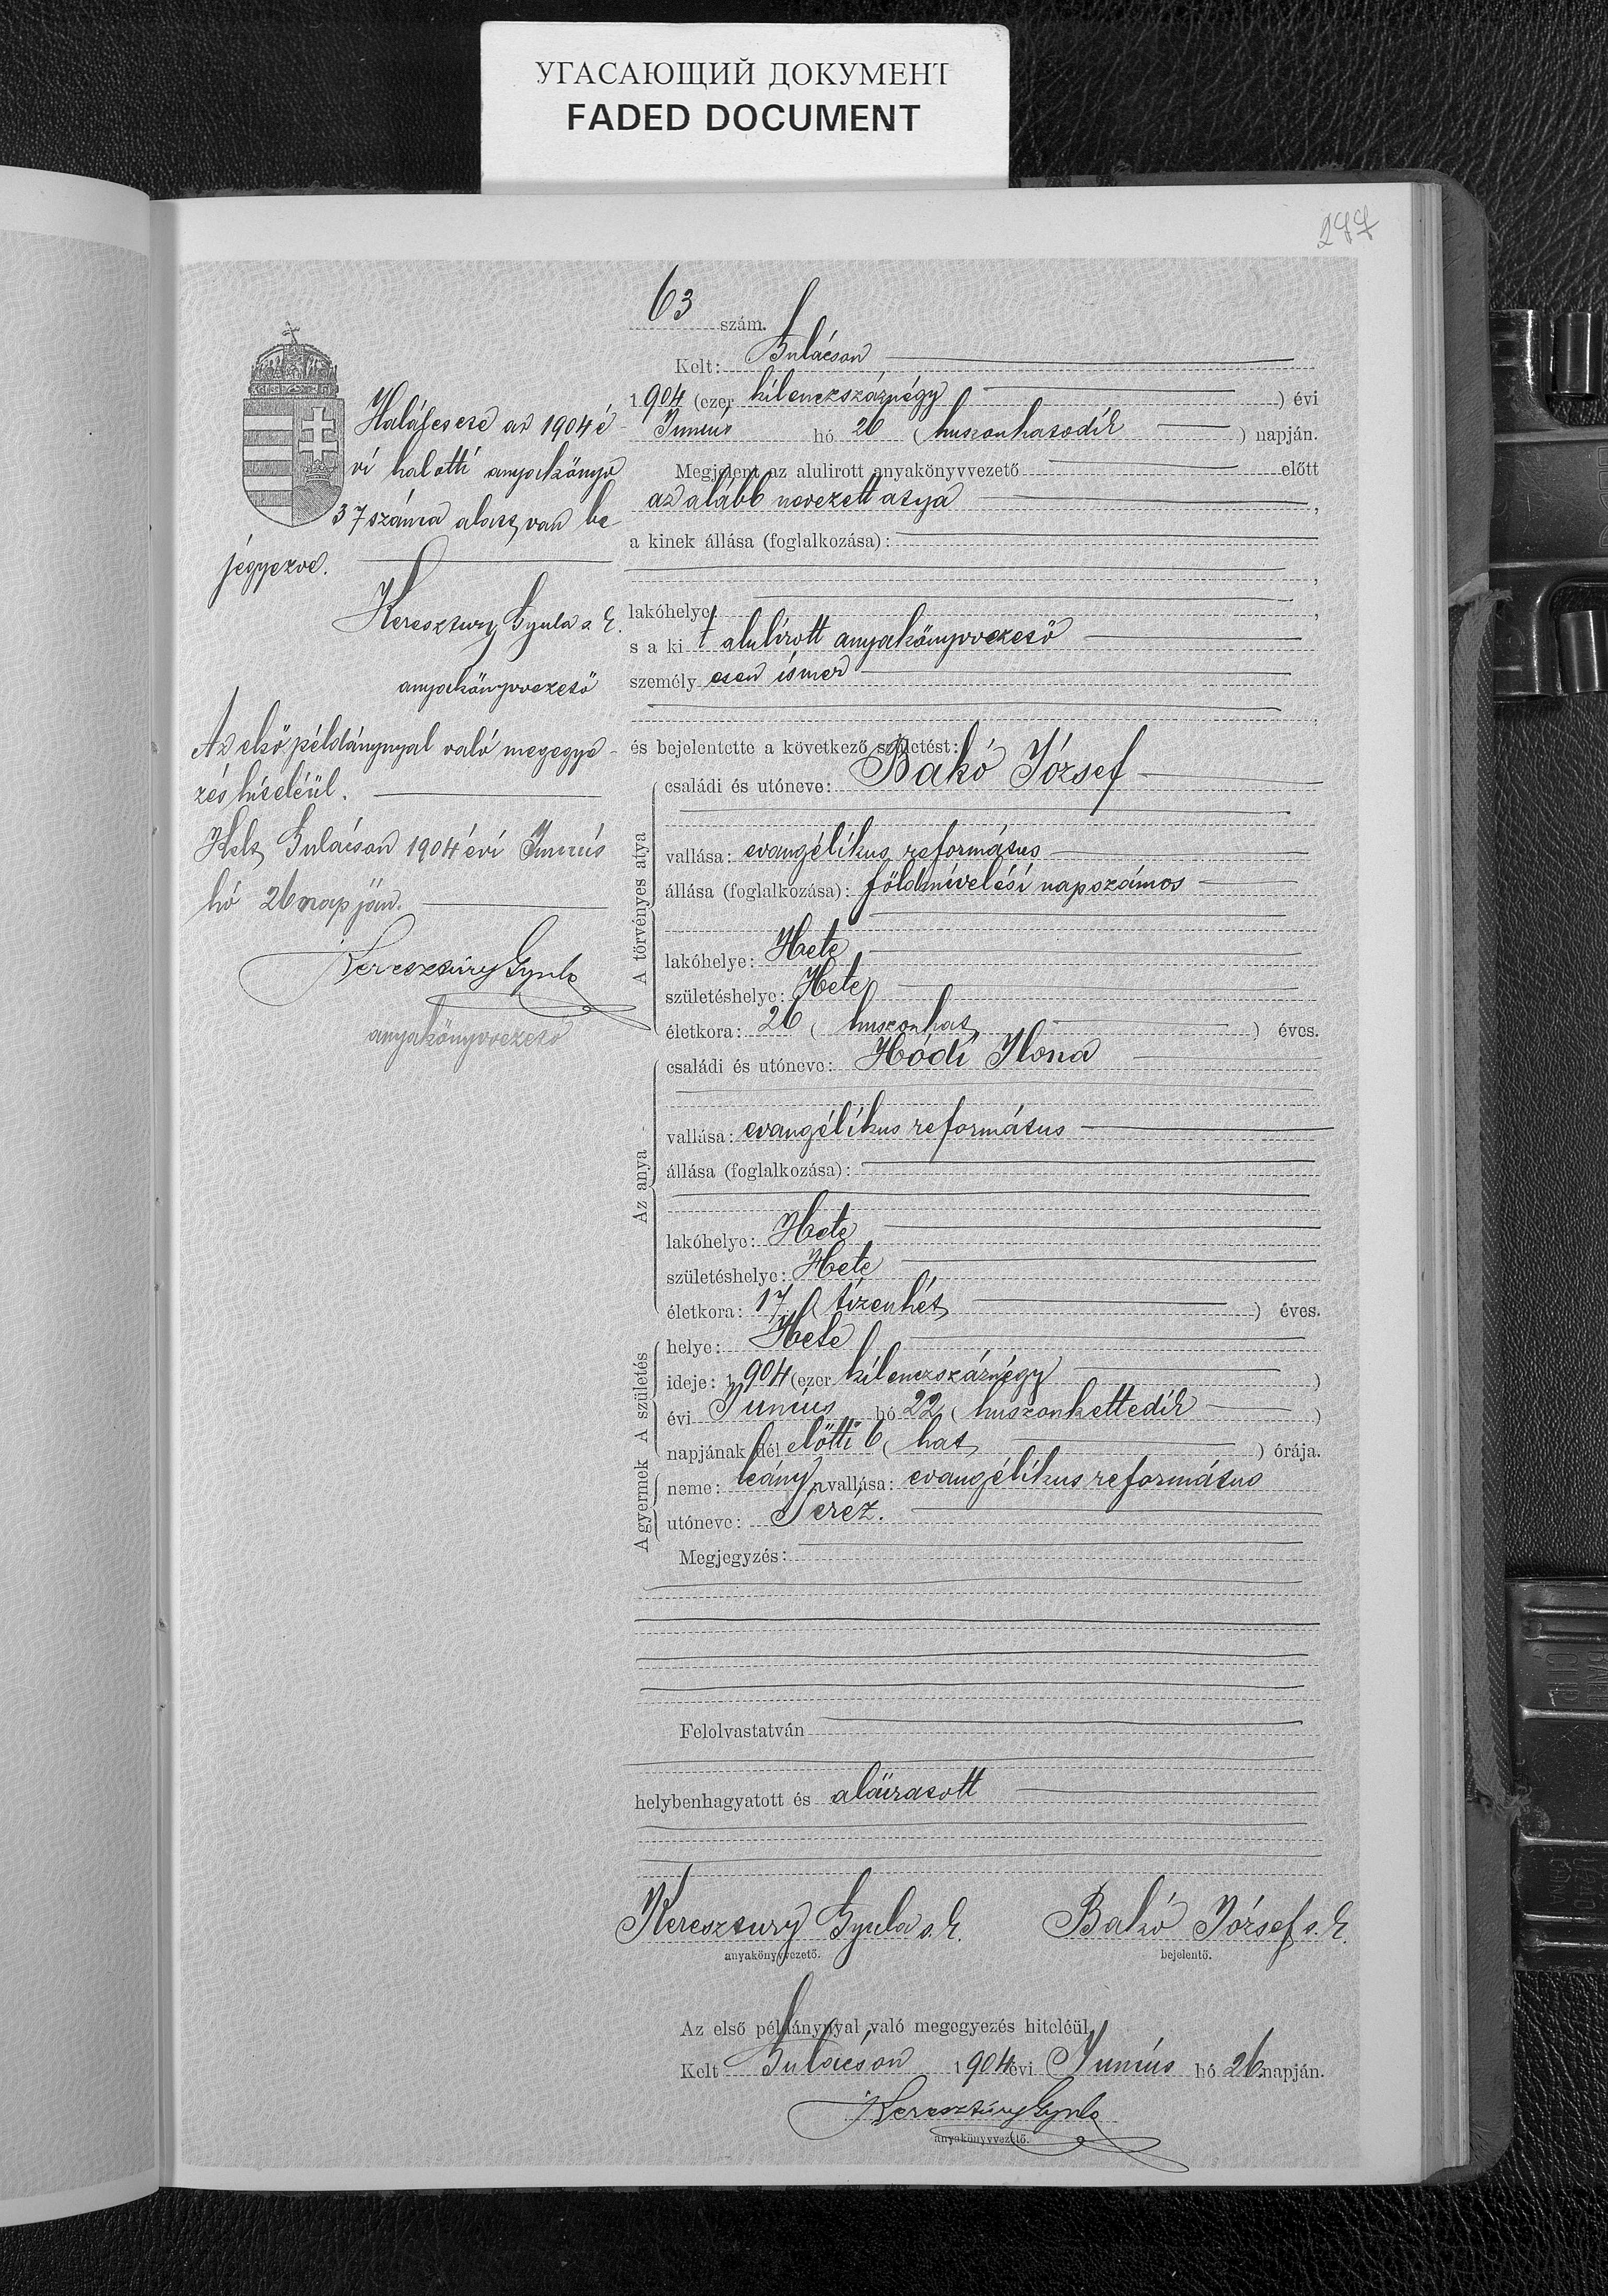 УГАСАЮЩИЙ ДОКУМЕНТ
FADED DOCUMENT
277
63 szám.
Kelt: Gulácson
1904 (ezer kilenczszáznégy ) évi
Junius hó 26 (huszonhatodik ) napján.
Megjelent az alulirott anyakönyvvezető előtt
az alább nevezett atya ,
a kinek állása (foglalkozása):
,
lakóhelye ,
s a ki t alulírott anyakönyvvezető
személy esen ismer
,
és bejelentette a következő születést:
A törvényes atya
családi és utóneve: Bakó József
vallása: evangélikus református
állása (foglalkozása): földmivelési napszámos
lakóhelye: Hete
születéshelye: Hete
életkora: 26 ( huszonhat ) éves.
Az anya
családi és utóneve: Hódi Ilona
vallása: evangélikus református
állása (foglalkozása):
lakóhelye: Hete
születéshelye: Hete
életkora: 17 ( tizenhét ) éves.
A születés
helye: Hete
ideje: 1904 (ezer kilenczszáznégy )
évi Junius hó 22 ( huszonkettedik )
napjának dél előtti 6 ( hat ) órája.
A gyermek
neme: leány vallása: evangélikus református
utóneve: Teréz.
Megjegyzés:
Felolvastatván
helybenhagyatott és aláiratott
Keresztury Gyula s. k. Bakó József s. k.
anyakönyvvezető. bejelentő.
Az első példánynyal való megegyezés hiteléül
Kelt Gulácson 1904 évi Junius hó 26 napján.
Keresztúry Gyula
anyakönyvvezető.
Halálesete az 1904 é-
vi halotti anyakönyv
37 száma alatt van be-
jegyezve.
Keresztury Gyula s. k.
anyakönyvvezető
Az első példánynyal való megegye-
zés hiteléül.
Kelt Gulácson 1904 évi Junius
hó 26 napján.
Keresztúry Gyula
anyakönyvvezető